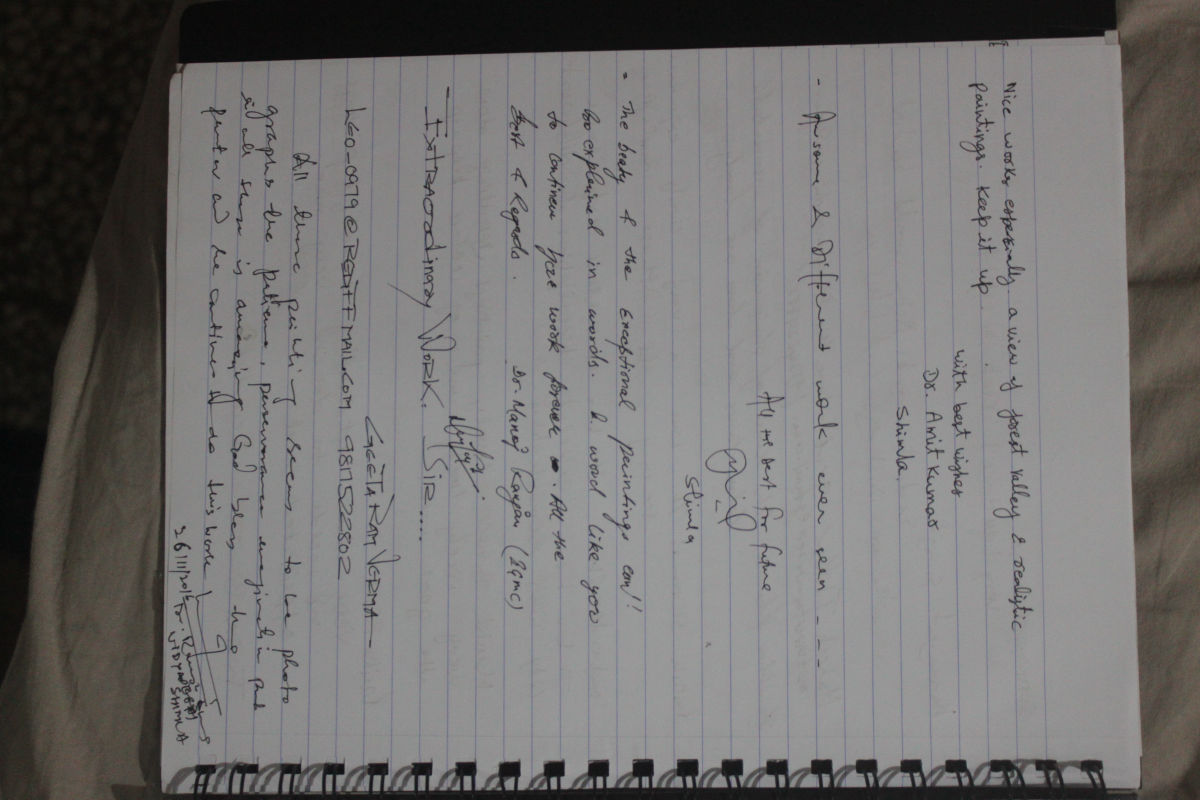 Nice works especially a view of forest valley & realistic
paintings. Keep it up.
with best wishes
Dr. Amit Kumar
Shimla.
- Awsome & Different work ever seen - - - -
All the best for future
Shimla
- The beaty & the exceptional paintings can't
be explained in words. A word like you
to continew for work forever. All the
best & Regards. Dr. Manoj (IGMC)
- EXTRAOrdinary WORK. SIR....
GEETA RAM VERMA -
LGO-0979@REDIFFMAIL.COM 9817522802
All these painting seems to be photo
graphs the patience, perseverance imagination and
of all these is amazing God bless the
painter and he continue to do this work
26/11/2015
SHIMLA